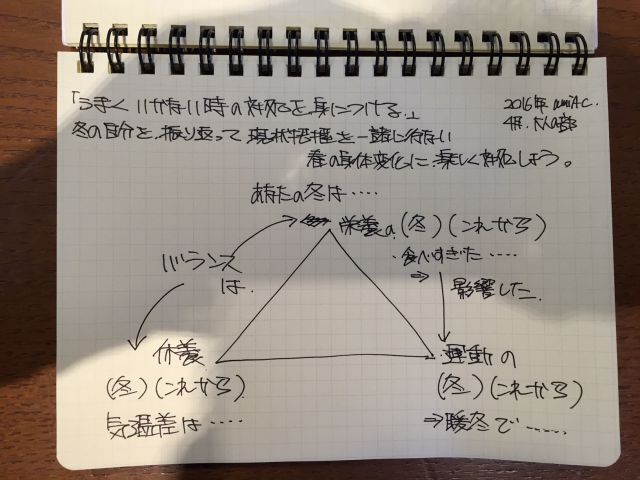 「うまくいかない時の対応を身につける。」
2016年 amiAC.
4月. 大人の部
冬の自分を、振り返って 現状把握を一諸に行ない
春の身体変化に 楽しく対応しよう。
あなたの冬は・・・・
栄養の (冬)(これから)
・食べすぎた・・・・・
⇒
影響した.
バランス
は.
休養
運動の
(冬)(これから)
(冬)(これから)
気温差は・・・・
⇒暖冬で・・・・・